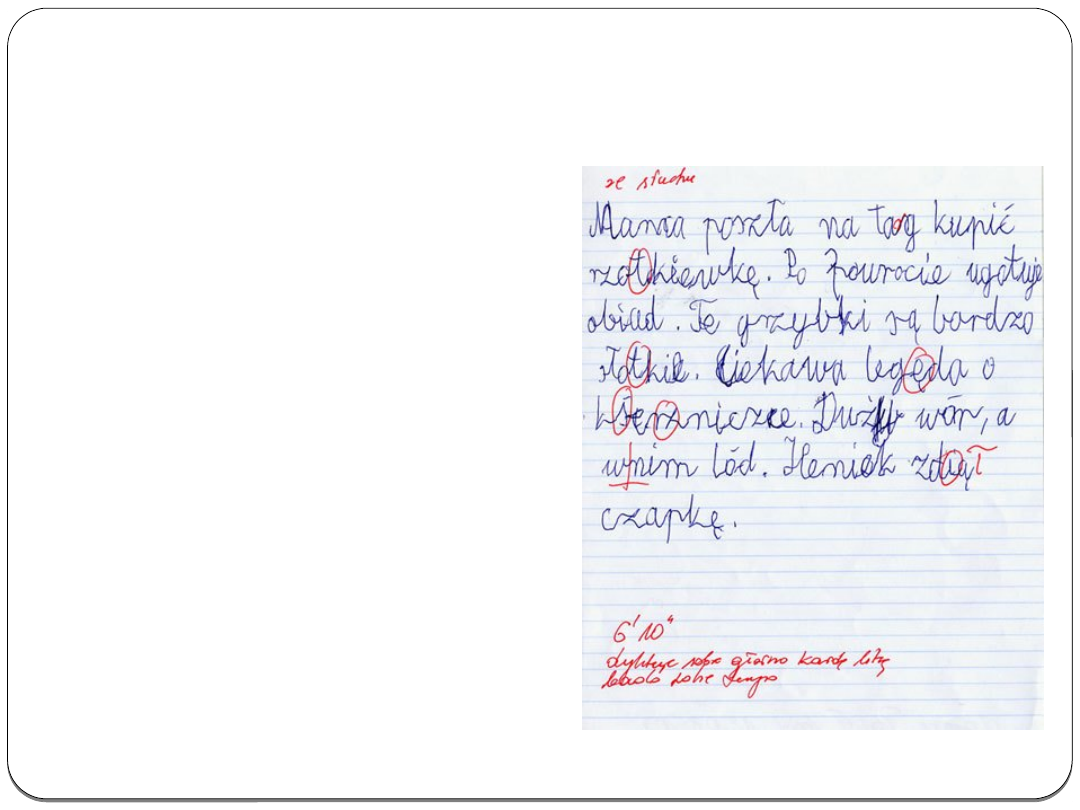 ze słuchu
Mama poszła na targ kupić
rzotkiewkę. Po powrocie ugotuje
obiad. Te grzybki są bardzo
słotkie. Ciekawa legęda o
ksierzniczce. Duży wór, a
wnim lód. Heniek zdią ł
czapkę.
6' 10"
dyktuje sobie głośno każdą literę
bardzo wolne tempo